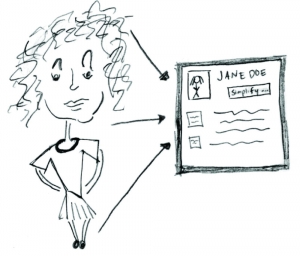 JANE DOE
simplify...